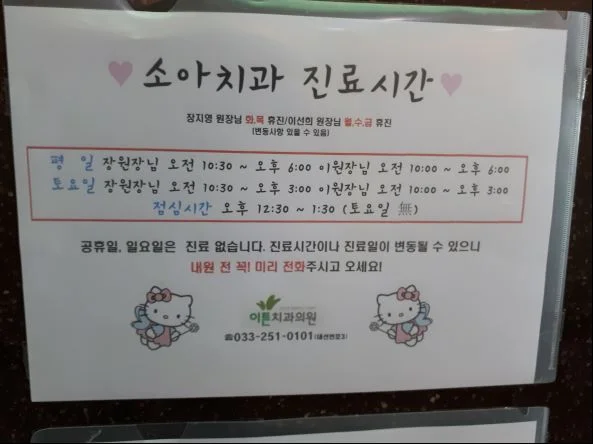 소아치과 진료시간
장지영 원장님 화,목 휴진/이선희 원장님 월,수,금 휴진
(변동사항 있을 수 있음)
평 일 장원장님 오전 10:30 ~ 오후 6:00 이원장님 오전 10:00 ~ 오후 6:00
토요일 장원장님 오전 10:30 ~ 오후 3:00 이원장님 오전 10:00 ~ 오후 3:00
점심시간 오후 12:30 ~ 1:30 (토요일 無)
공휴일, 일요일은 진료 없습니다. 진료시간이나 진료일이 변동될 수 있으니
내원 전 꼭! 미리 전화주시고 오세요!
이튼치과의원
☎033-251-0101(내선번호3)